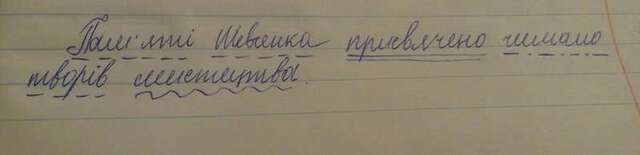 Пам'яті Шевченка присвячено чимало
творів мистецтва.